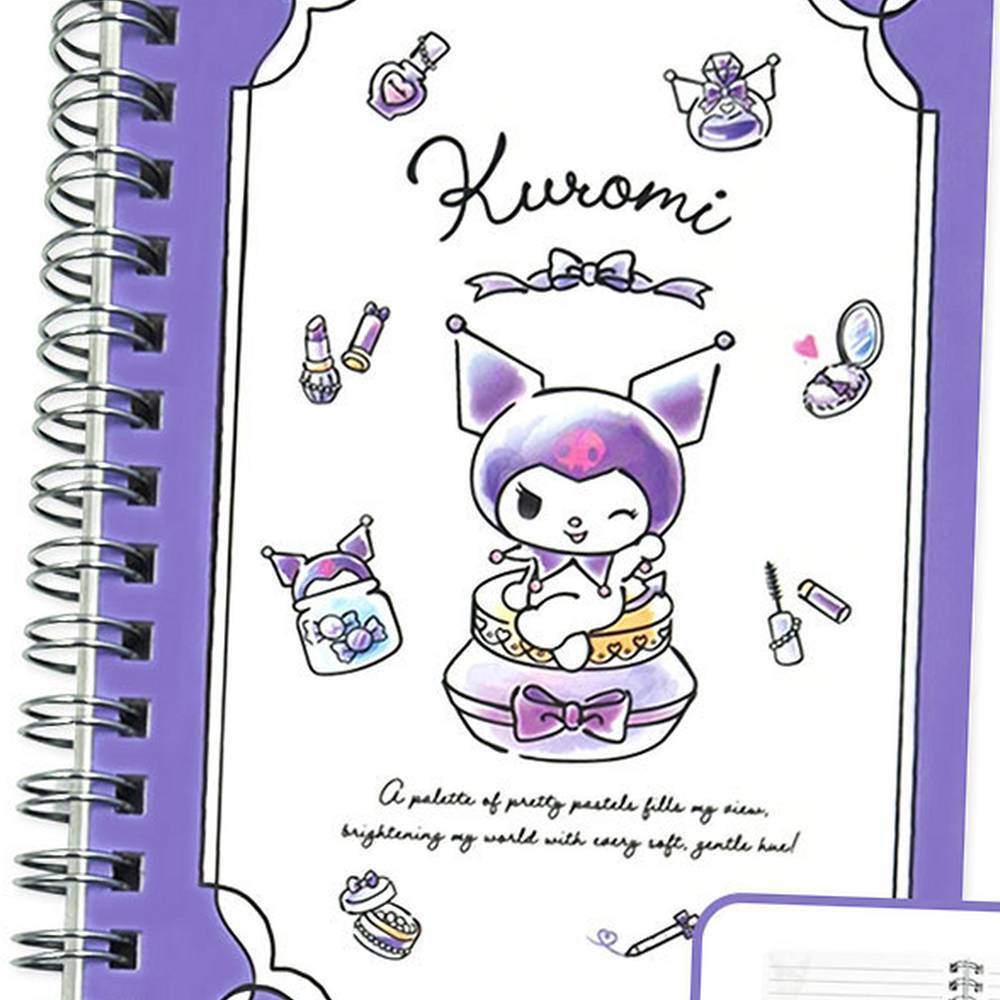 Kuromi
A palette of pretty pastels fills my view,
brightening my world with every soft, gentle hue!